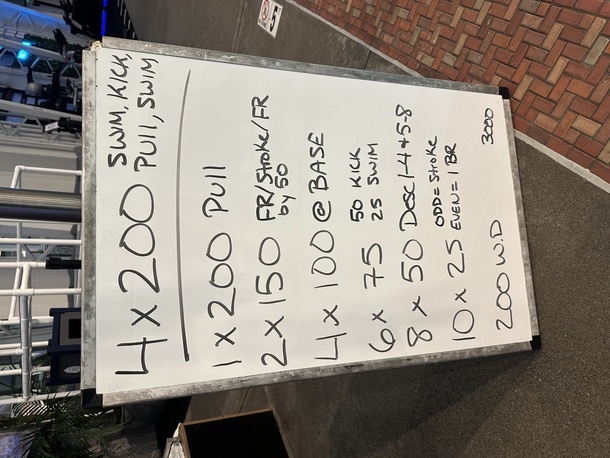 4 x 200 SWIM, KICK,
PULL, SWIM,
1 x 200 PUll
2 x 150 FR/Stroke/FR
by 50
4 x 100 @ BASE
6 x 75 50 KICK
25 SWIM
8 x 50 Desc 1-4 + 5-8
10 x 25 ODD = Stroke
EVEN = 1 BR
200 W.D 3000